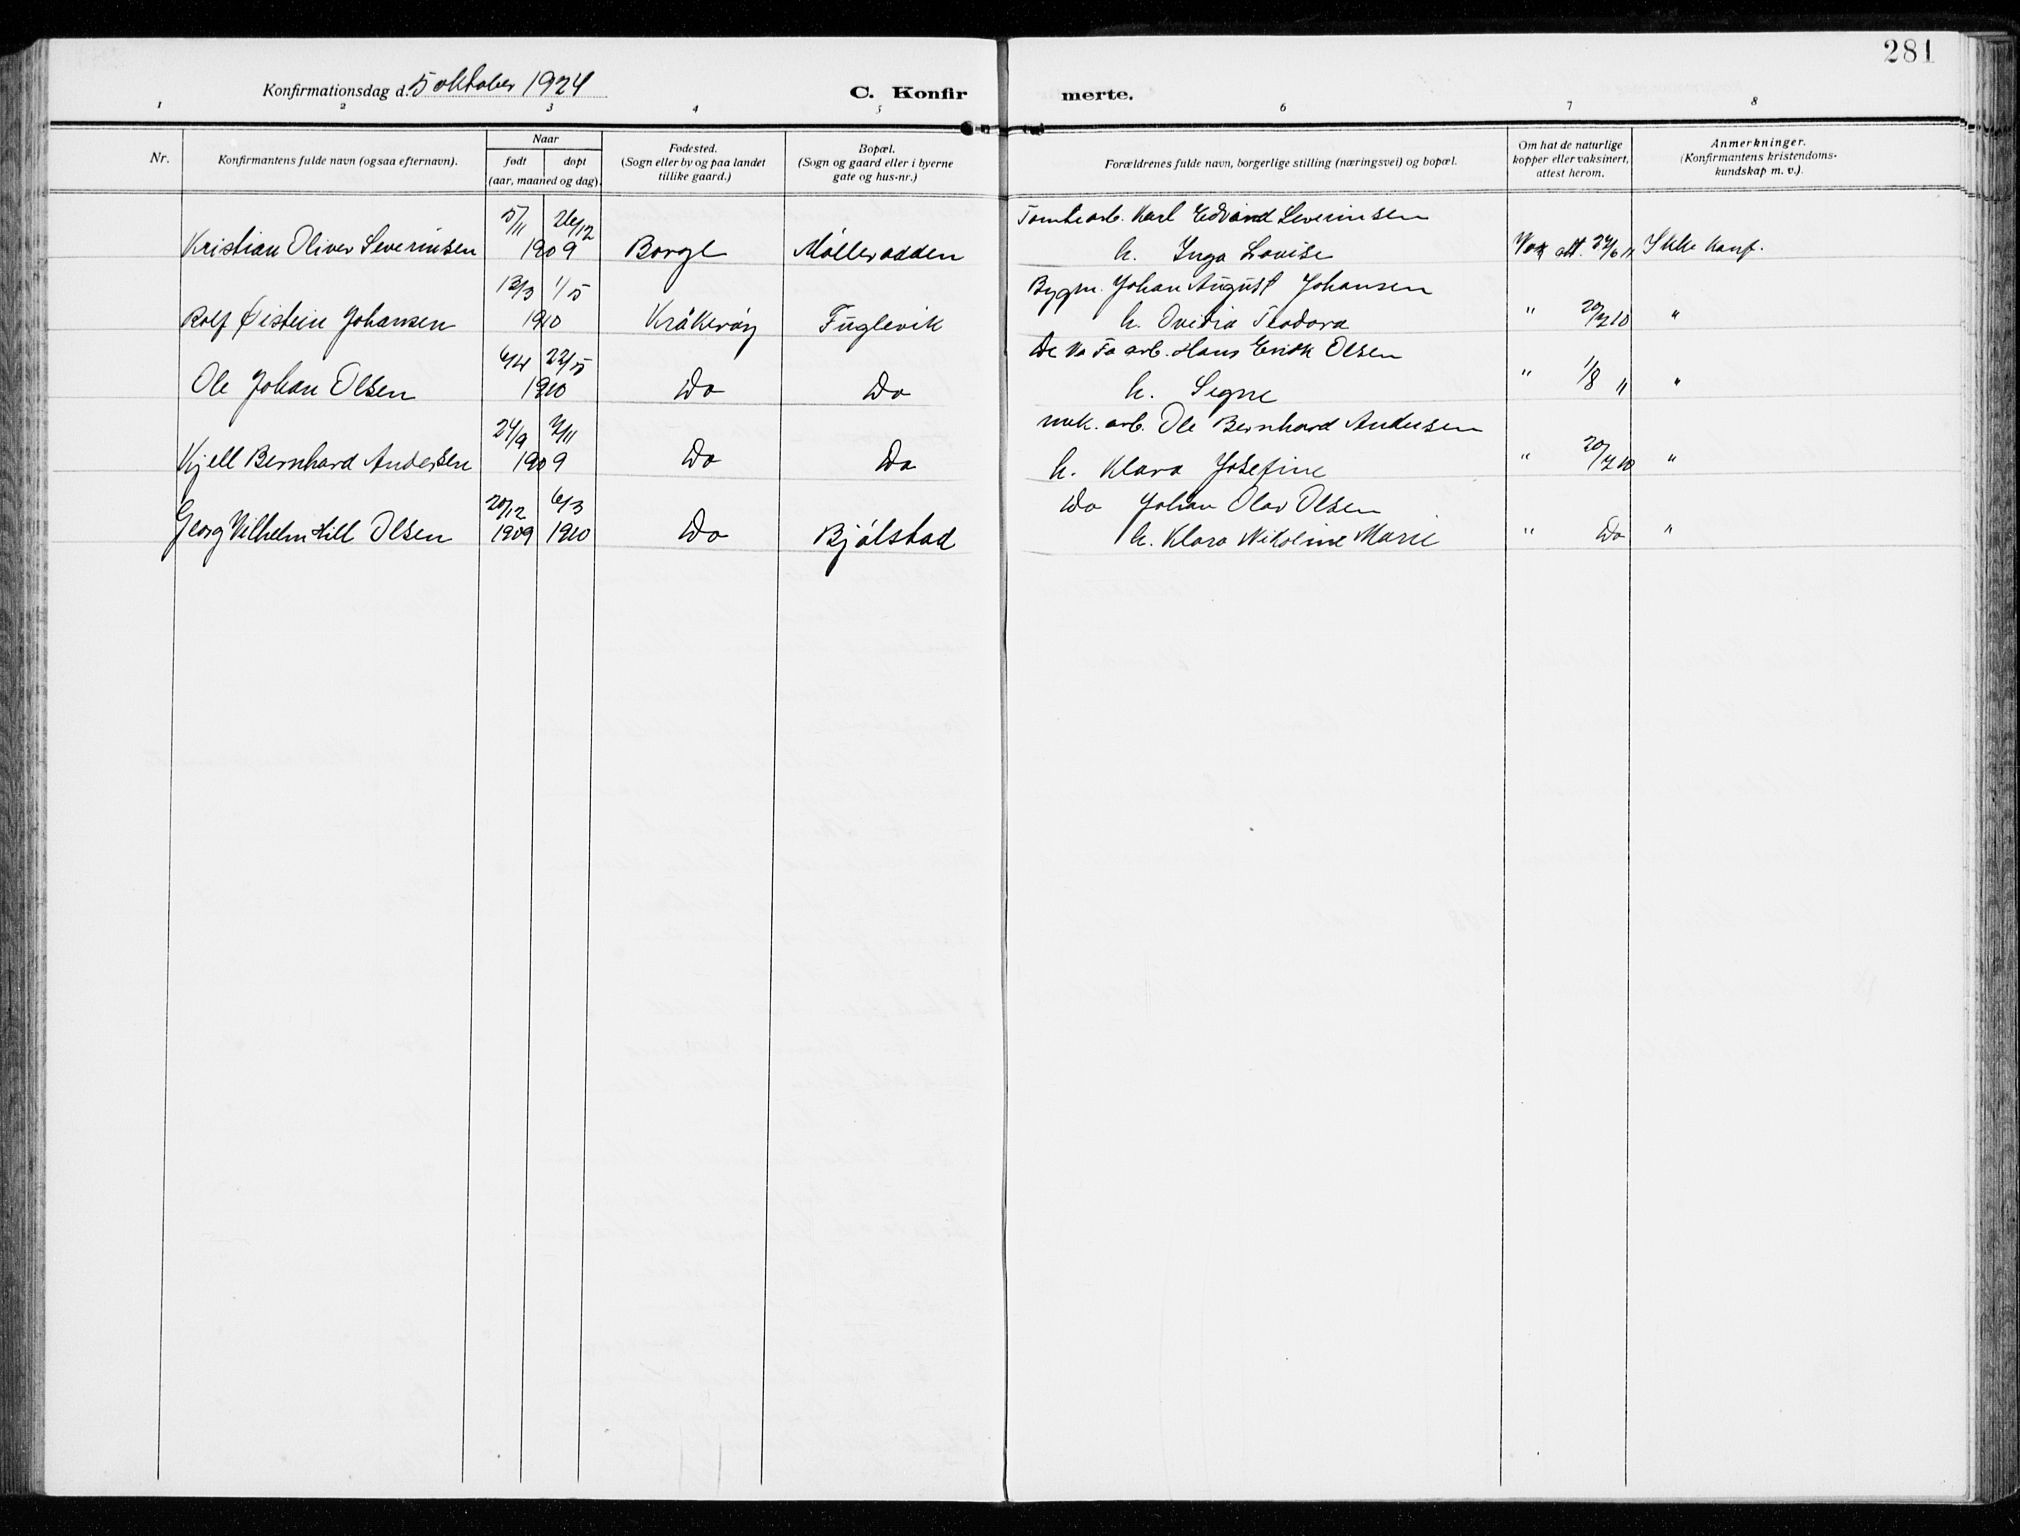 281
Konfirmationsdag d. 5 oktober 1924
C. Konfirmerte.
1 2 3 4 5 6 7 8
Nr.
Konfirmantens fulde navn (ogsaa efternavn).
Naar
født døpt
(aar, maaned og dag).
Fødested.
(Sogn eller by og paa landet
tillike gaard.)
Bopæl.
(Sogn og gaard eller i byerne
gate og hus-nr.)
Forældrenes fulde navn, borgerlige stilling (næringsvei) og bopæl.
Om hat de naturlige
kopper eller vaksinert,
attest herom.
Anmerkninger.
(Konfirmantens kristendoms-
kundskap m. v.).
5/11 26/12 Tomtearb. Karl Edvard Severinsen
Kristian Oliver Severinsen 1909 Borge Mølleradden h. Inga Lovise Vak att. 27/6 11 Ikke konf.
13/3 1/5 Bygm. Johan August Johansen
Rolf Øistein Johansen 1910 Kråkerøy Fuglevik h. Ovidia Teodora " 20/7 10 "
6/4 22/5 De No Fa arb. Hans Erik Olsen
Ole Johan Olsen 1910 Do Do h. Signe " 1/8 " "
24/9 7/11 mek. arb. Ole Bernhard Andersen
Kjell Bernhard Andersen 1909 Do Do h. Klara Josefine " 20/7 10 "
20/12 6/3 Do Johan Olav Olsen
Georg Vilhelm Hill Olsen 1909 1910 Do Bjølstad h. Klara Nikoline Marie " Do "